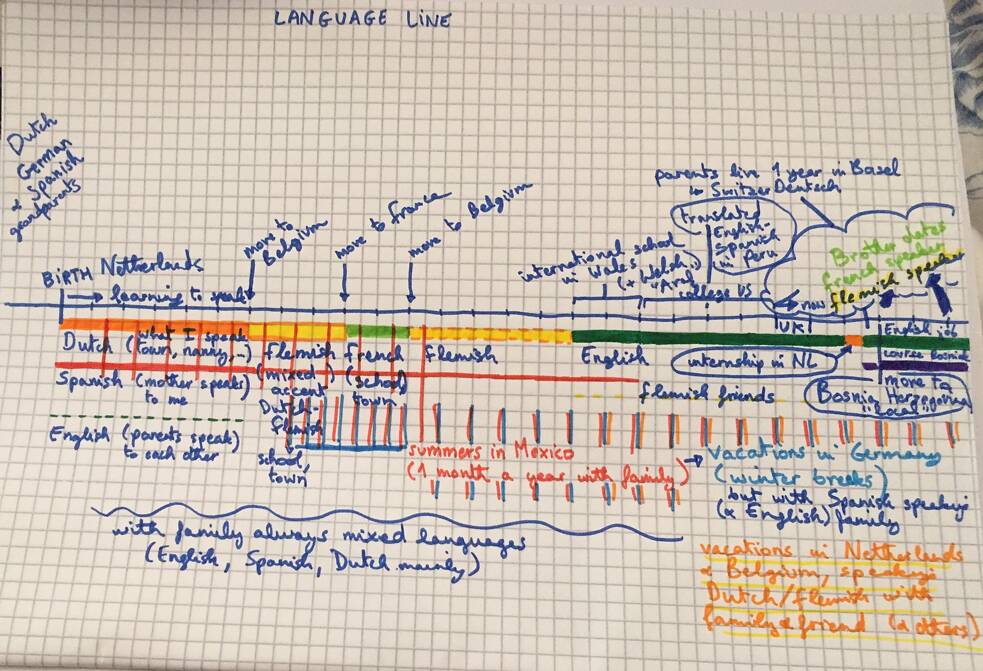 LANGUAGE LINE
Dutch
German
& Spanish
grandparents
BIRTH Netherlands
→ learning to speak
move to
Belgium
move to France
move to Belgium
international school
in Wales
(+ Welsh..)
college US
translated
English-
Spanish
in Peru
parents live 1 year in Basel
↳ Switzer Deutsch
Brother dates
french speaker
flemish speaker
now
UK
English job
course Bosnian
Dutch (what I speak
town, nanny, ..)
Flemish
(mixed
accent
Dutch-
flemish
school,
town
french
(school,
town
flemish
English
internship in NL
move to
Bosnia Herzegovina
"local"
Spanish (mother speaks)
to me
English (parents speak)
to each other
flemish friends
summers in Mexico
(1 month a year with family)
→ vacations in Germany
(winter breaks)
but with Spanish speaking
(& English) family
with family always mixed languages
(English, Spanish, Dutch mainly)
vacations in Netherlands
& Belgium, speaking
Dutch/flemish with
family & friend (& others)